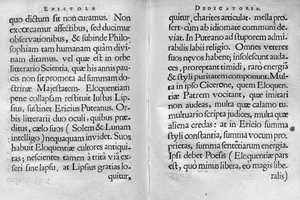 EPISTOLA
quo dictum sit non curamus. Non
excæcamur affectibus, sed ducimur
observationibus, & subinde Philo-
sophiam tam humanam quàm divi-
nam ditamus. vel quæ est in orbe
literario Scientia, quæ his annis pau-
cis non sit promota ad summam do-
ctrinæ Majestatem. Eloquentiam
pene collapsam restituit Iustus Lip-
sius, fustinens Ericius Puteanus. Or-
bis literarii duo oculi, quibus præ-
cæteris, cælo suos (Solem & Lunam
intelligo) nequaquam invidet. Suos
habuit Eloquentiæ cultores antiqui-
tas; nescientes tamen à trita viâ ex-
silire sine lapsu, at Lipsius gratias lo-
quitur,
DEDICATORIA.
quitur, charites articulat. mella pro-
fert cùm ab idiomate communi de-
viat. In Puteano ad stuporem admi-
rabilis labii religio. Omnes veteres
suos nevos habent; insolentes audaces,
proreptant timidi, raro energiâ
& styli puritatem componunt. Mul-
ta in ipso Cicerone, quem Eloquen-
tiæ Patrem vocitant, quæ imitari
non audeas, multa quæ calamo tu-
multuario scripta judices, multa quæ
aliena credas: at in Ericio summa
styli constantia, summa vocum pro-
prietas, summa sententiarum energia.
Ipsi debet Poësis (Eloquentiæ pars
est, quo minus libera, eo magis libe-
ralis)